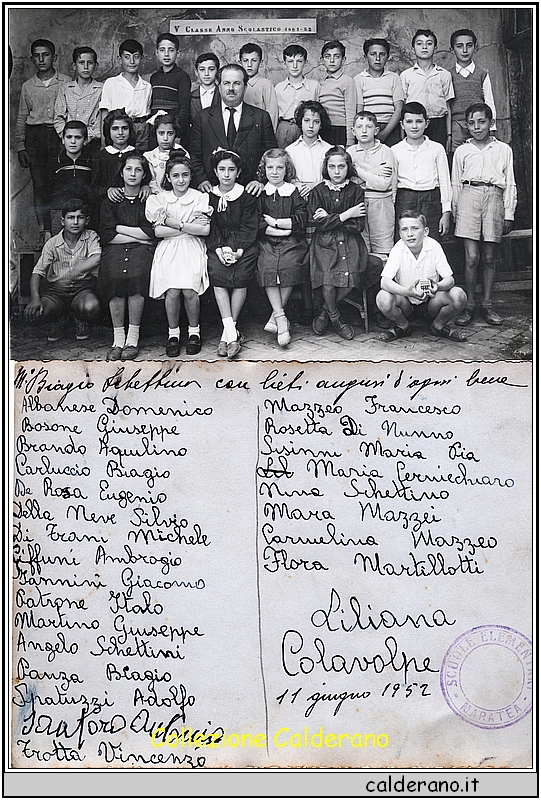 V Classe Anno Scolastico 1951-52
M° Biagio Schettini con lieti auguri d'ogni bene
Albanese Domenico
Bosone Giuseppe
Brando Aquilino
Carluccio Biagio
De Rosa Eugenio
Della Neve Silvio
Di Trani Michele
Giffuni Ambrogio
Iannini Giacomo
Patrone Italo
Martino Giuseppe
Angelo Schettini
Panza Biagio
Spatuzzi Adolfo
Santoro
Trotta Vincenzo
Mazzeo Francesco
Rosetta Di Nunno
Sisinni Maria Pia
Maria Cerniechiaro
Nina Schettino
Mara Mazzei
Carmelina Mazzeo
Flora Martillotti
Liliana
Colavolpe
11 giugno 1952
SCUOLE ELEMENTARI
MARATEA
Collezione Calderano
calderano.it